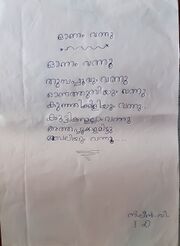 ഓണം വന്നു
ഓണം വന്നു
തുമ്പപ്പൂവും വന്നു
ഓണത്തുമ്പിയും വന്നു
കുഞ്ഞിക്കിളിയും വന്നു
കുട്ടികളെല്ലാം വന്നു
അത്തപ്പൂക്കളമിട്ടു
മാവേലിയും വന്നു